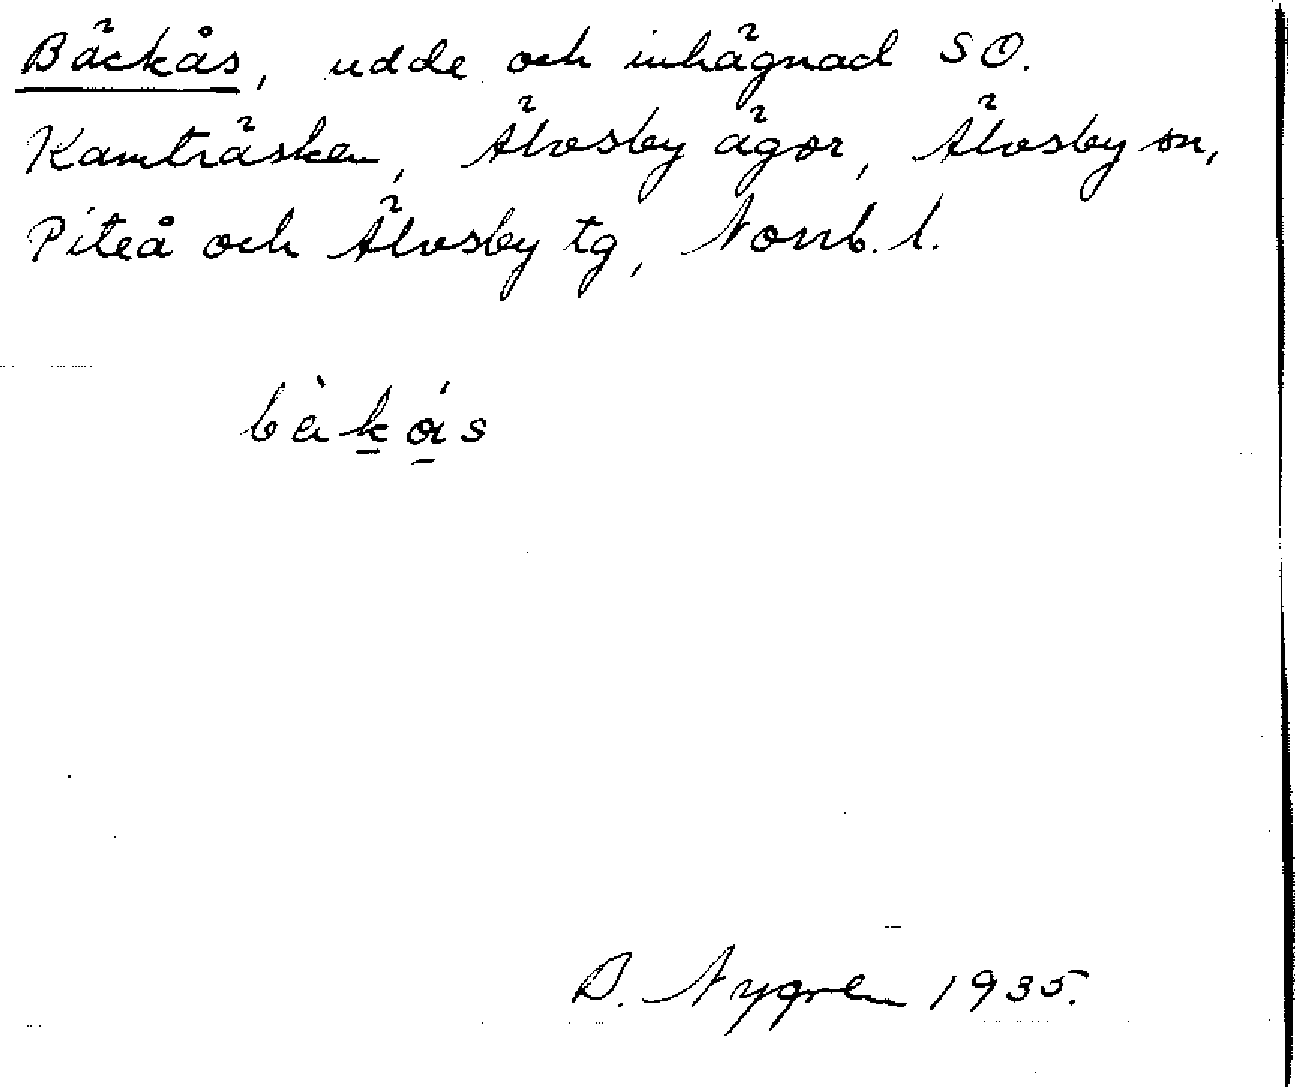 Bäckås, udde och inhägnad SO.
Kamträsken, Älvsby ägor, Älvsby sn,
Piteå och Älvsby tg, Norrb. l.
bäkås
B. Nygren 1935.